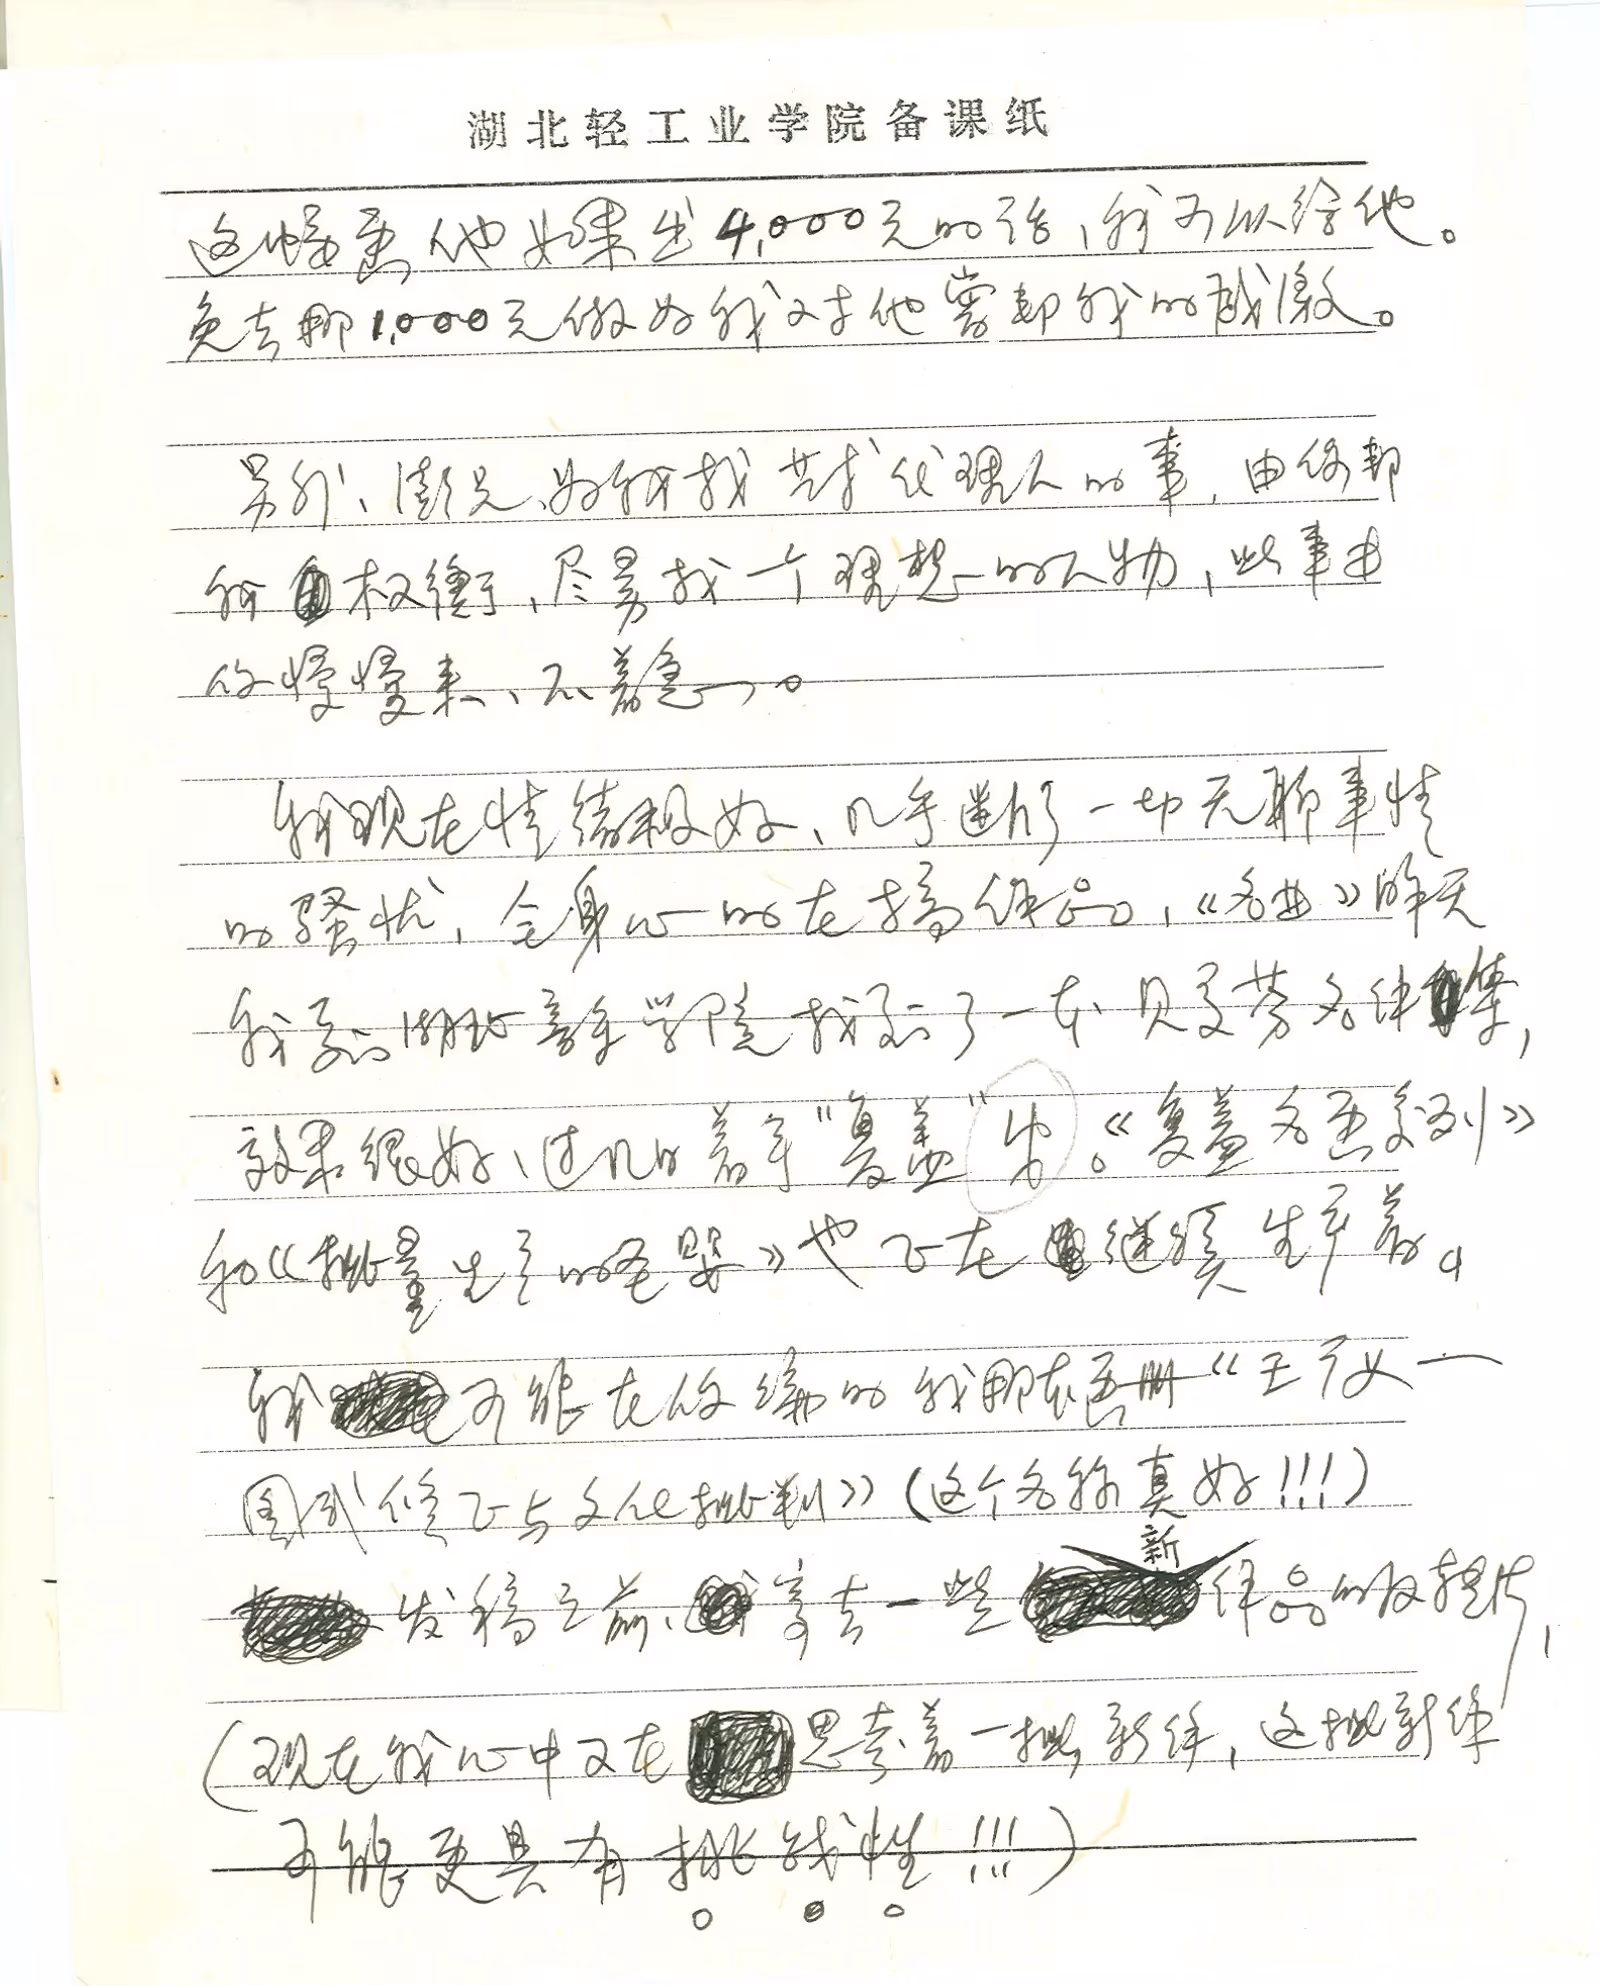 湖北轻工业学院备课纸
这幅画他如果出4,000元的话,我可以给他。
免去那1,000元做为我对他帮我的感激。
另外、澎兄、为我找艺术代理人的事,由你帮
我权衡,尽量找一个理想的人物,此事由
你慢慢来、不着急。
我现在情绪极好、几乎断了一切无聊事情
的骚扰,全身心的在搞作品,《名曲》昨天
我到湖北音乐学院找到了一本贝多芬名作集,
效果很好、过几日着手"覆盖"为。《覆盖名画系列》
和《批量生产的圣婴》也正在继续生产着。
我可能在你编的我那本画册《王广义——
图式修正与文化批判》(这个名称真好!!!)
发稿之前、寄去一些新作品的反转片,
(现在我心中又在思索着一批新作,这批新作
可能更具有挑战性!!!)